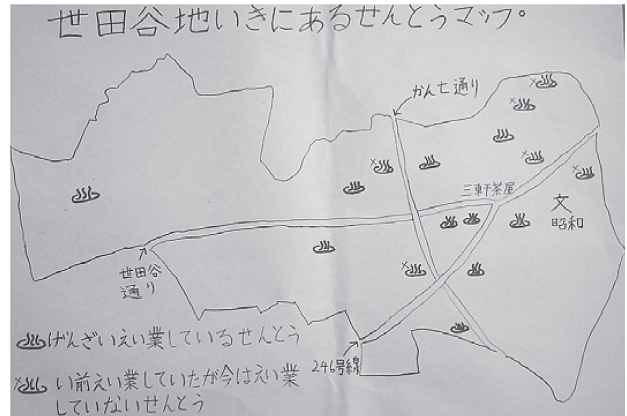 世田谷地いきにあるせんとうマップ。
かん七通り
三軒茶屋
文
昭和
世田谷
通り
246号線
げんざいえい業しているせんとう
い前えい業していたが今はえい業
していないせんとう